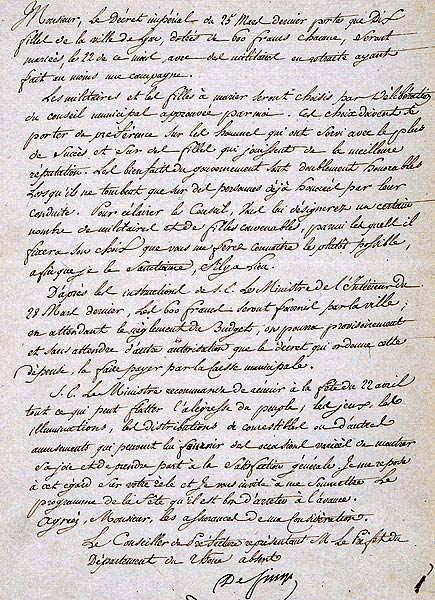 Monsieur, le Décret impérial du 25 Mars dernier porte que Dix
filles de la ville de Lyon, dotées de 600 francs chacune, seront
mariées, le 22 de ce mois, avec des militaires en retraite ayant
fait au moins une campagne.
Les militaires et les filles à marier seront choisis par délibération
du conseil municipal approuvée par moi. Ces choix doivent se
porter de préférence sur les hommes qui ont servi avec le plus
de succès et sur des filles qui jouissent de la meilleure
réputation. Les bienfaits du gouvernement sont doublement honorables
lorsqu'ils ne tombent que sur des personnes déjà honorées par leur
conduite. Pour éclairer le Conseil, vous lui désignerez un certain
nombre de militaires et de filles convenables, parmi lesquels il
fixera son choix que vous me ferez connaître le plutôt possible,
afin que je le sanctionne, s'il y a lieu.
D'après les instructions de S. E. le Ministre de l'Intérieur du
28 Mars dernier, les 600 francs seront fournis par la ville;
en attendant le règlement du Budget, on pourra provisoirement
et sans attendre d'autre autorisation que le décret qui ordonne cette
dépense, la faire payer par la caisse municipale.
S. E. le Ministre recommande de réunir à la fête du 22 avril
tout ce qui peut flatter l'alégresse du peuple; les jeux, les
illuminations, les distributions de comestibles ou d'autres
amusements qui peuvent lui fournir des occasions variées de montrer
sa joie et de prendre part à la satisfaction générale. Je me repose
à cet égard sur votre zèle et je vous invite à me soumettre le
programme de la fête qu'il est bon d'arrêter à l'avance.
Agréez, Monsieur, les assurances de ma Considération.
Le Conseiller de Préfecture représentant M. le Préfet du
Département du Rhône absent